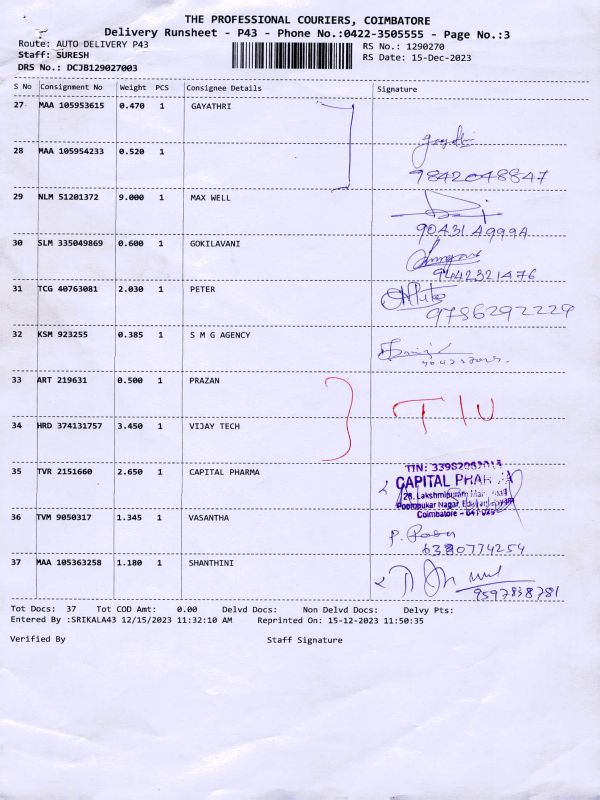 THE PROFESSIONAL COURIERS, COIMBATORE
Delivery Runsheet - P43 - Phone No.:0422-3505555 - Page No.:3
Route: AUTO DELIVERY P43
RS No.: 1290270
Staff: SURESH
RS Date: 15-Dec-2023
DRS No.: DCJB129027003
S No Consignment No Weight PCS Consignee Details Signature
27 MAA 105953615 0.470 1 GAYATHRI
28 MAA 105954233 0.520 1
9842048847
29 NLM 51201372 9.000 1 MAX WELL
30 SLM 335049869 0.600 1 GOKILAVANI
9442321476
31 TCG 40763081 2.030 1 PETER
9786292229
32 KSM 923255 0.385 1 S M G AGENCY
33 ART 219631 0.500 1 PRAZAN
34 HRD 374131757 3.450 1 VIJAY TECH
35 TVR 2151660 2.650 1 CAPITAL PHARMA
CAPITAL
Coimbatore
36 TVM 9050317 1.345 1 VASANTHA
6380774254
37 MAA 105363258 1.180 1 SHANTHINI
9597838781
Tot Docs: 37 Tot COD Amt: 0.00 Delvd Docs: Non Delvd Docs: Delvy Pts:
Entered By :SRIKALA43 12/15/2023 11:32:10 AM Reprinted On: 15-12-2023 11:50:35
Verified By Staff Signature